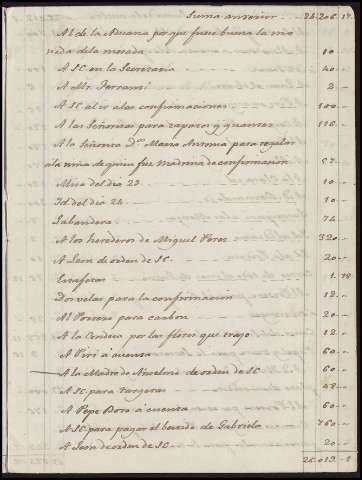 Suma anterior 24.206. 17.
Al de la Aduana por que fuese buena la mo
neda de la morada 10
A SE en la Secretaria 40
A Mr. Farrami 2
A SE al ir a las confirmaciones 100
A las Señoritas para zapatos y guantes 116
A la Señorita Dª Maria Antonia para regalar
a la niña de quien fue Madrina de confirmacion
Misa del dia 23 10
Id. del dia 24 10
Labandera 74
A los herederos de Miguel Perez 320
A Leon de orden de SE 20
Estafetas 1. 18
Dos velas para la confirmacion 12
Al Portero para carbon 20
A la Condesa por las flores que trajo 12
A Piri a cuenta 60
A la Madre de Anselma de orden de SE 60
A SE para targetas 48
A Pepe Boro á cuenta 60
A SE para pagar el bestido de Gabriela 760
A Leon de orden de SE 20
26.013